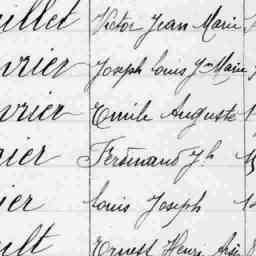 illet Victor Jean Marie
vrier Joseph Louis Jn Marie
vrier Emile Auguste
rier Ferdinand Jh
ier Louis Joseph
ult Ernest Henri